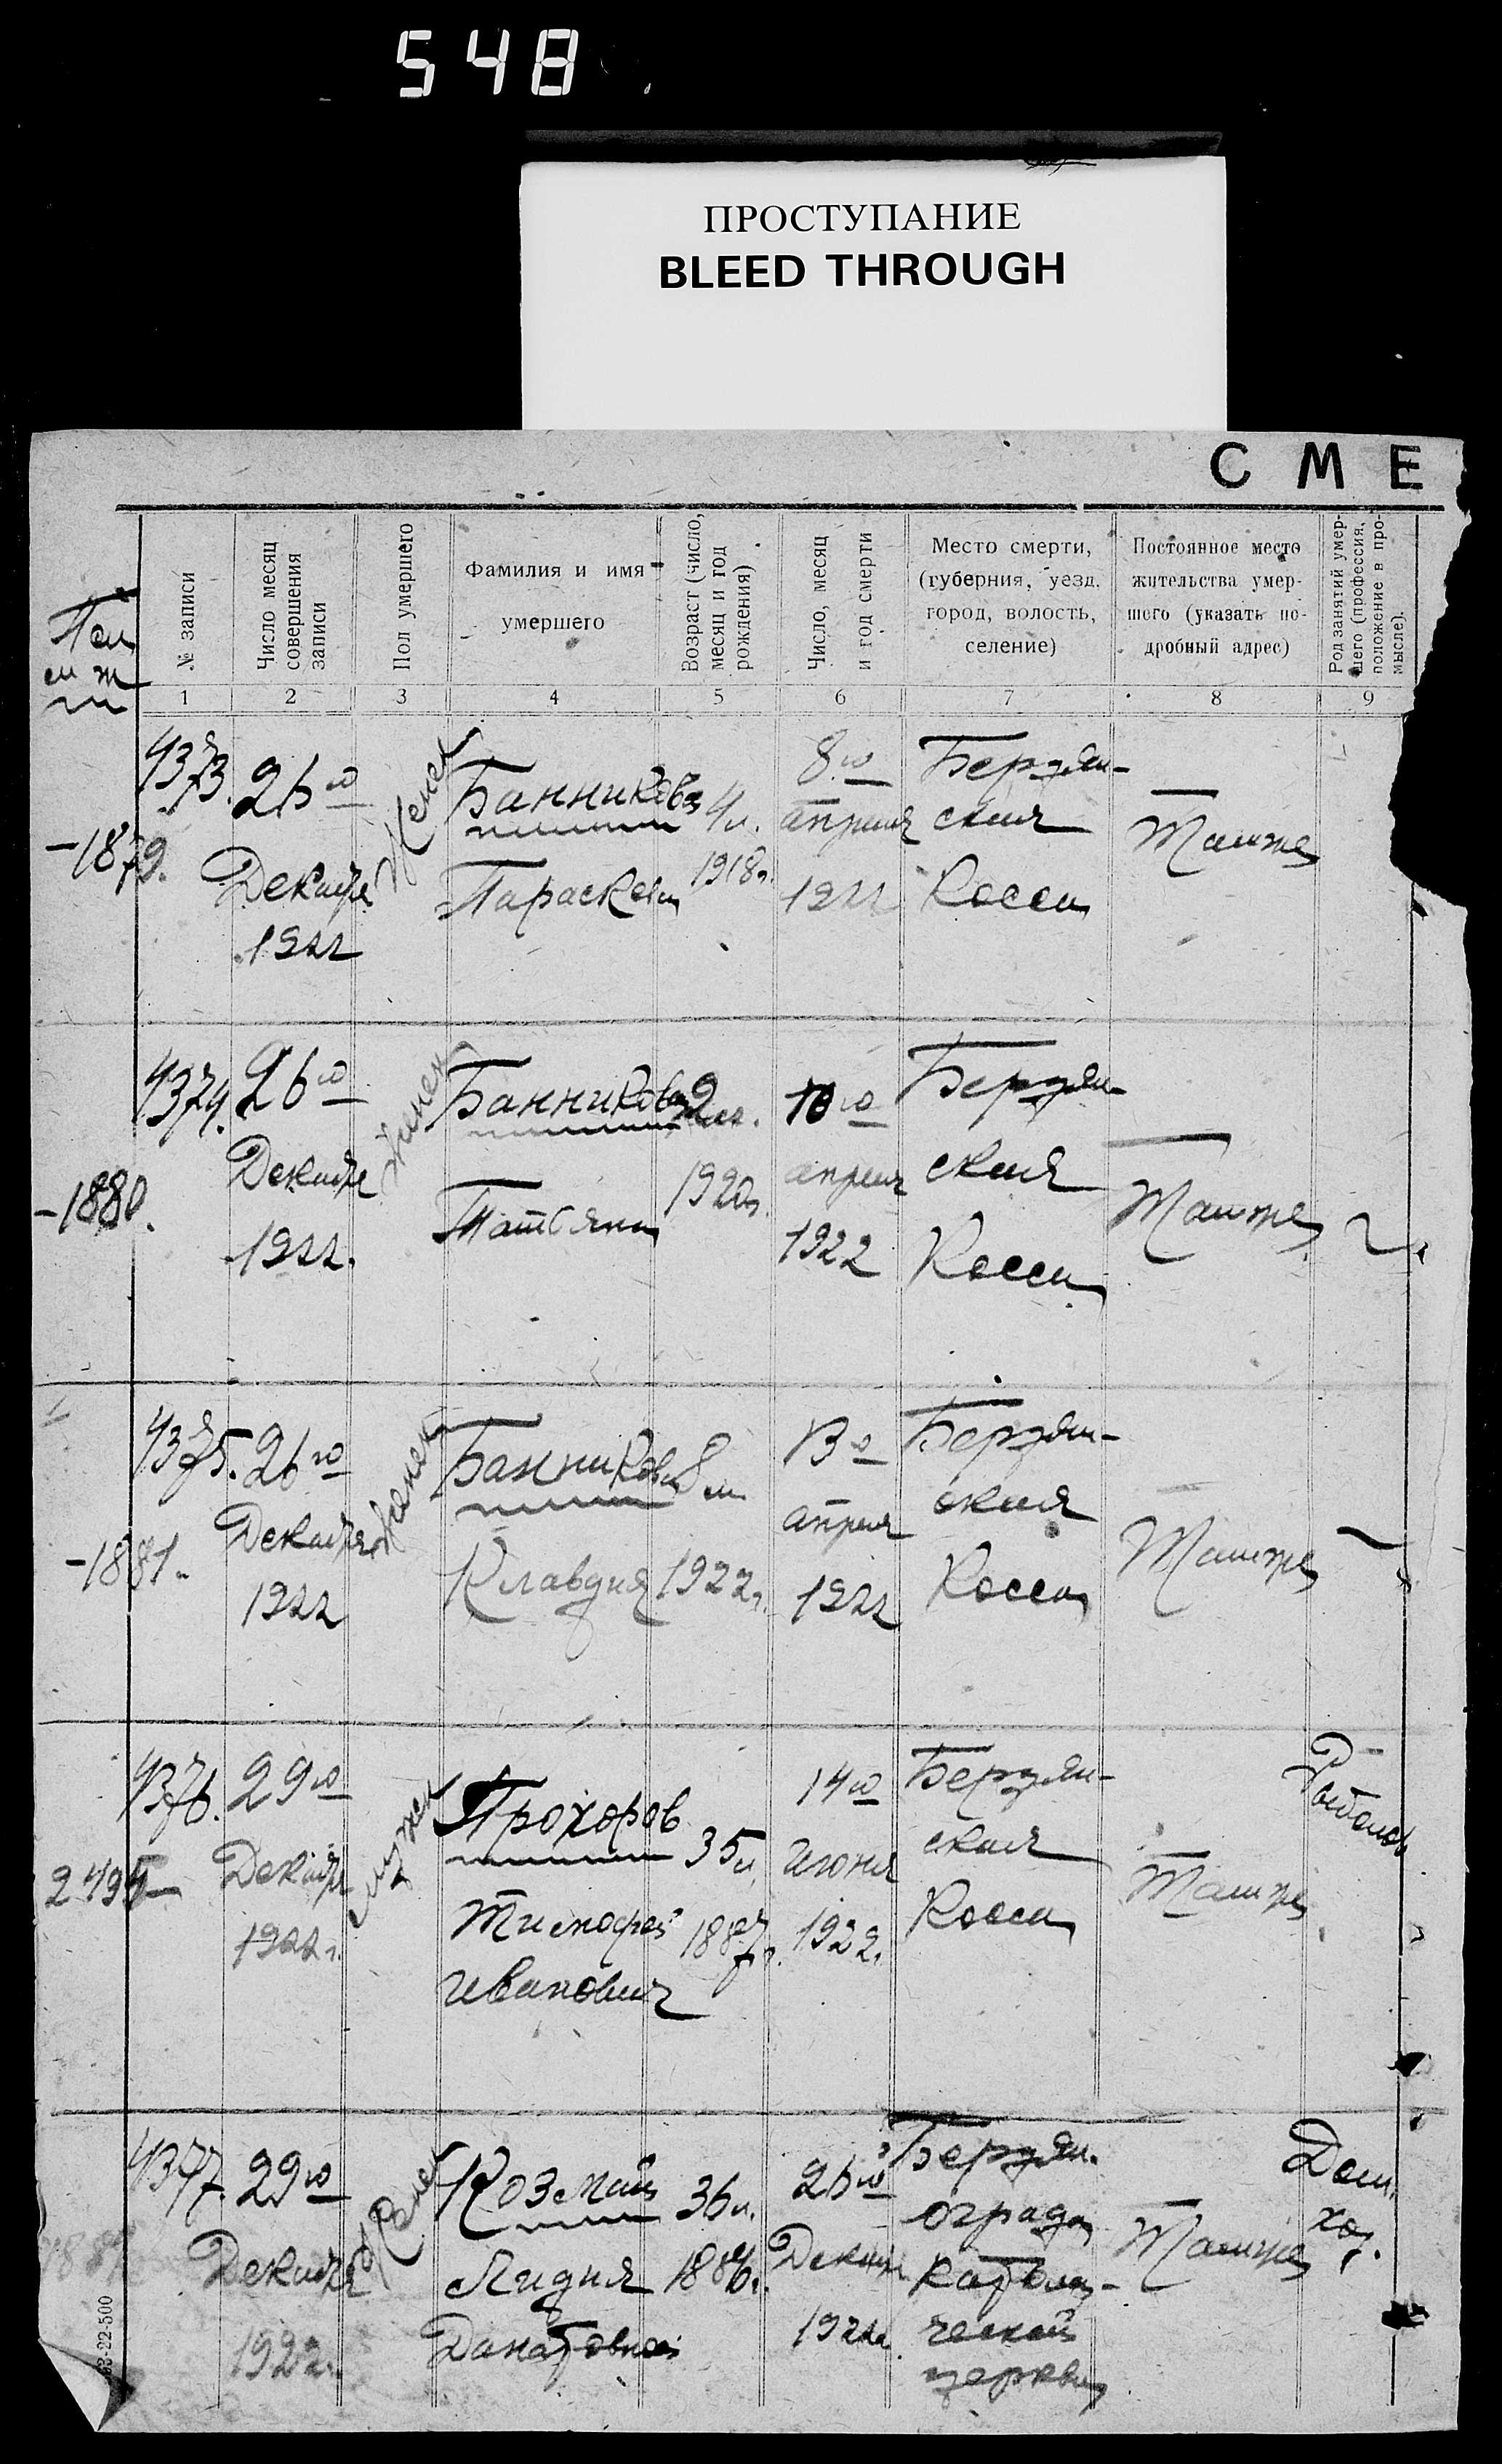 548
ПРОСТУПАНИЕ
BLEED THROUGH
СМЕ
№ записи
Число месяц
совершения
записи
Пол умершего
Фамилия и имя
умершего
Возраст (число,
месяц и год
рождения)
Число, месяц
и год смерти
Место смерти,
(губерния, уезд.
город, волость,
селение)
Постоянное место
жительства умер-
шего (указать по-
дробный адрес)
Род занятий умер-
шего (профессия,
положение в про-
мысле).
1 2 3 4 5 6 7 8 9
4373.
-1879.
26го
Декабря
1922
Женск
Банникова
Параскева
4л.
1918г.
8го
апреля
1922
Бердян-
ская
Косса
Там же
4374.
-1880.
26го
Декабря
1922.
Женск
Банникова
Татьяна
2
1920г.
10го
апреля
1922
Бердян-
ская
Косса
Там же
4375.
-1881.
26го
Декабря
1922
Женск
Банникова
Клавдия
8 м
1922г.
13го
апреля
1922
Бердян-
ская
Косса
Там же
4376.
2495
29го
Декабря
1922г.
мужск
Прохоров
Тимофей
Иванович
35л
1887г.
14го
июня
1922г.
Бердян-
ская
Косса
Там же
Рыболов
4377.
29го
Декабря
1922г.
Женск
Лидия
Донатовна
36л.
1886г.
26го
Декабря
1922г.
Бердян.
ограда
католи-
ческой
церкви
Там же
Дом.
хоз.
63-22-500